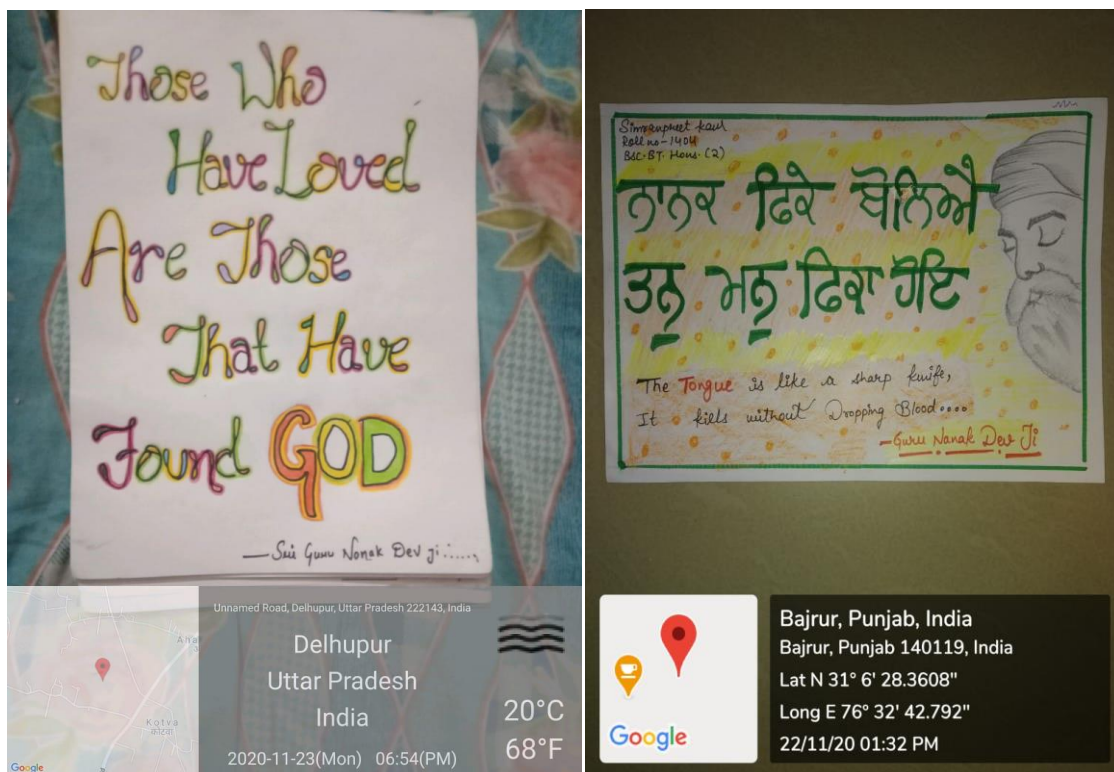 Those Who
Have Loved
Are Those
That Have
Found GOD
— Sri Guru Nanak Dev ji......,
Unnamed Road, Delhupur, Uttar Pradesh 222143, India
Delhupur
Uttar Pradesh
India
2020-11-23(Mon) 06:54(PM)
20°C
68°F
Kotva
कोटवा
Google
Simranpreet kaur
Roll no-1404
BSC.BT. Hons. (2)
ਨਾਨਕ ਫਿਕੇ ਬੋਲਿਐ
ਤਨੁ ਮਨੁ ਫਿਕਾ ਹੋਇ
The Tongue is like a sharp knife,
It kills without Dropping Blood....
-Guru Nanak Dev Ji
Google
Bajrur, Punjab, India
Bajrur, Punjab 140119, India
Lat N 31° 6' 28.3608"
Long E 76° 32' 42.792"
22/11/20 01:32 PM